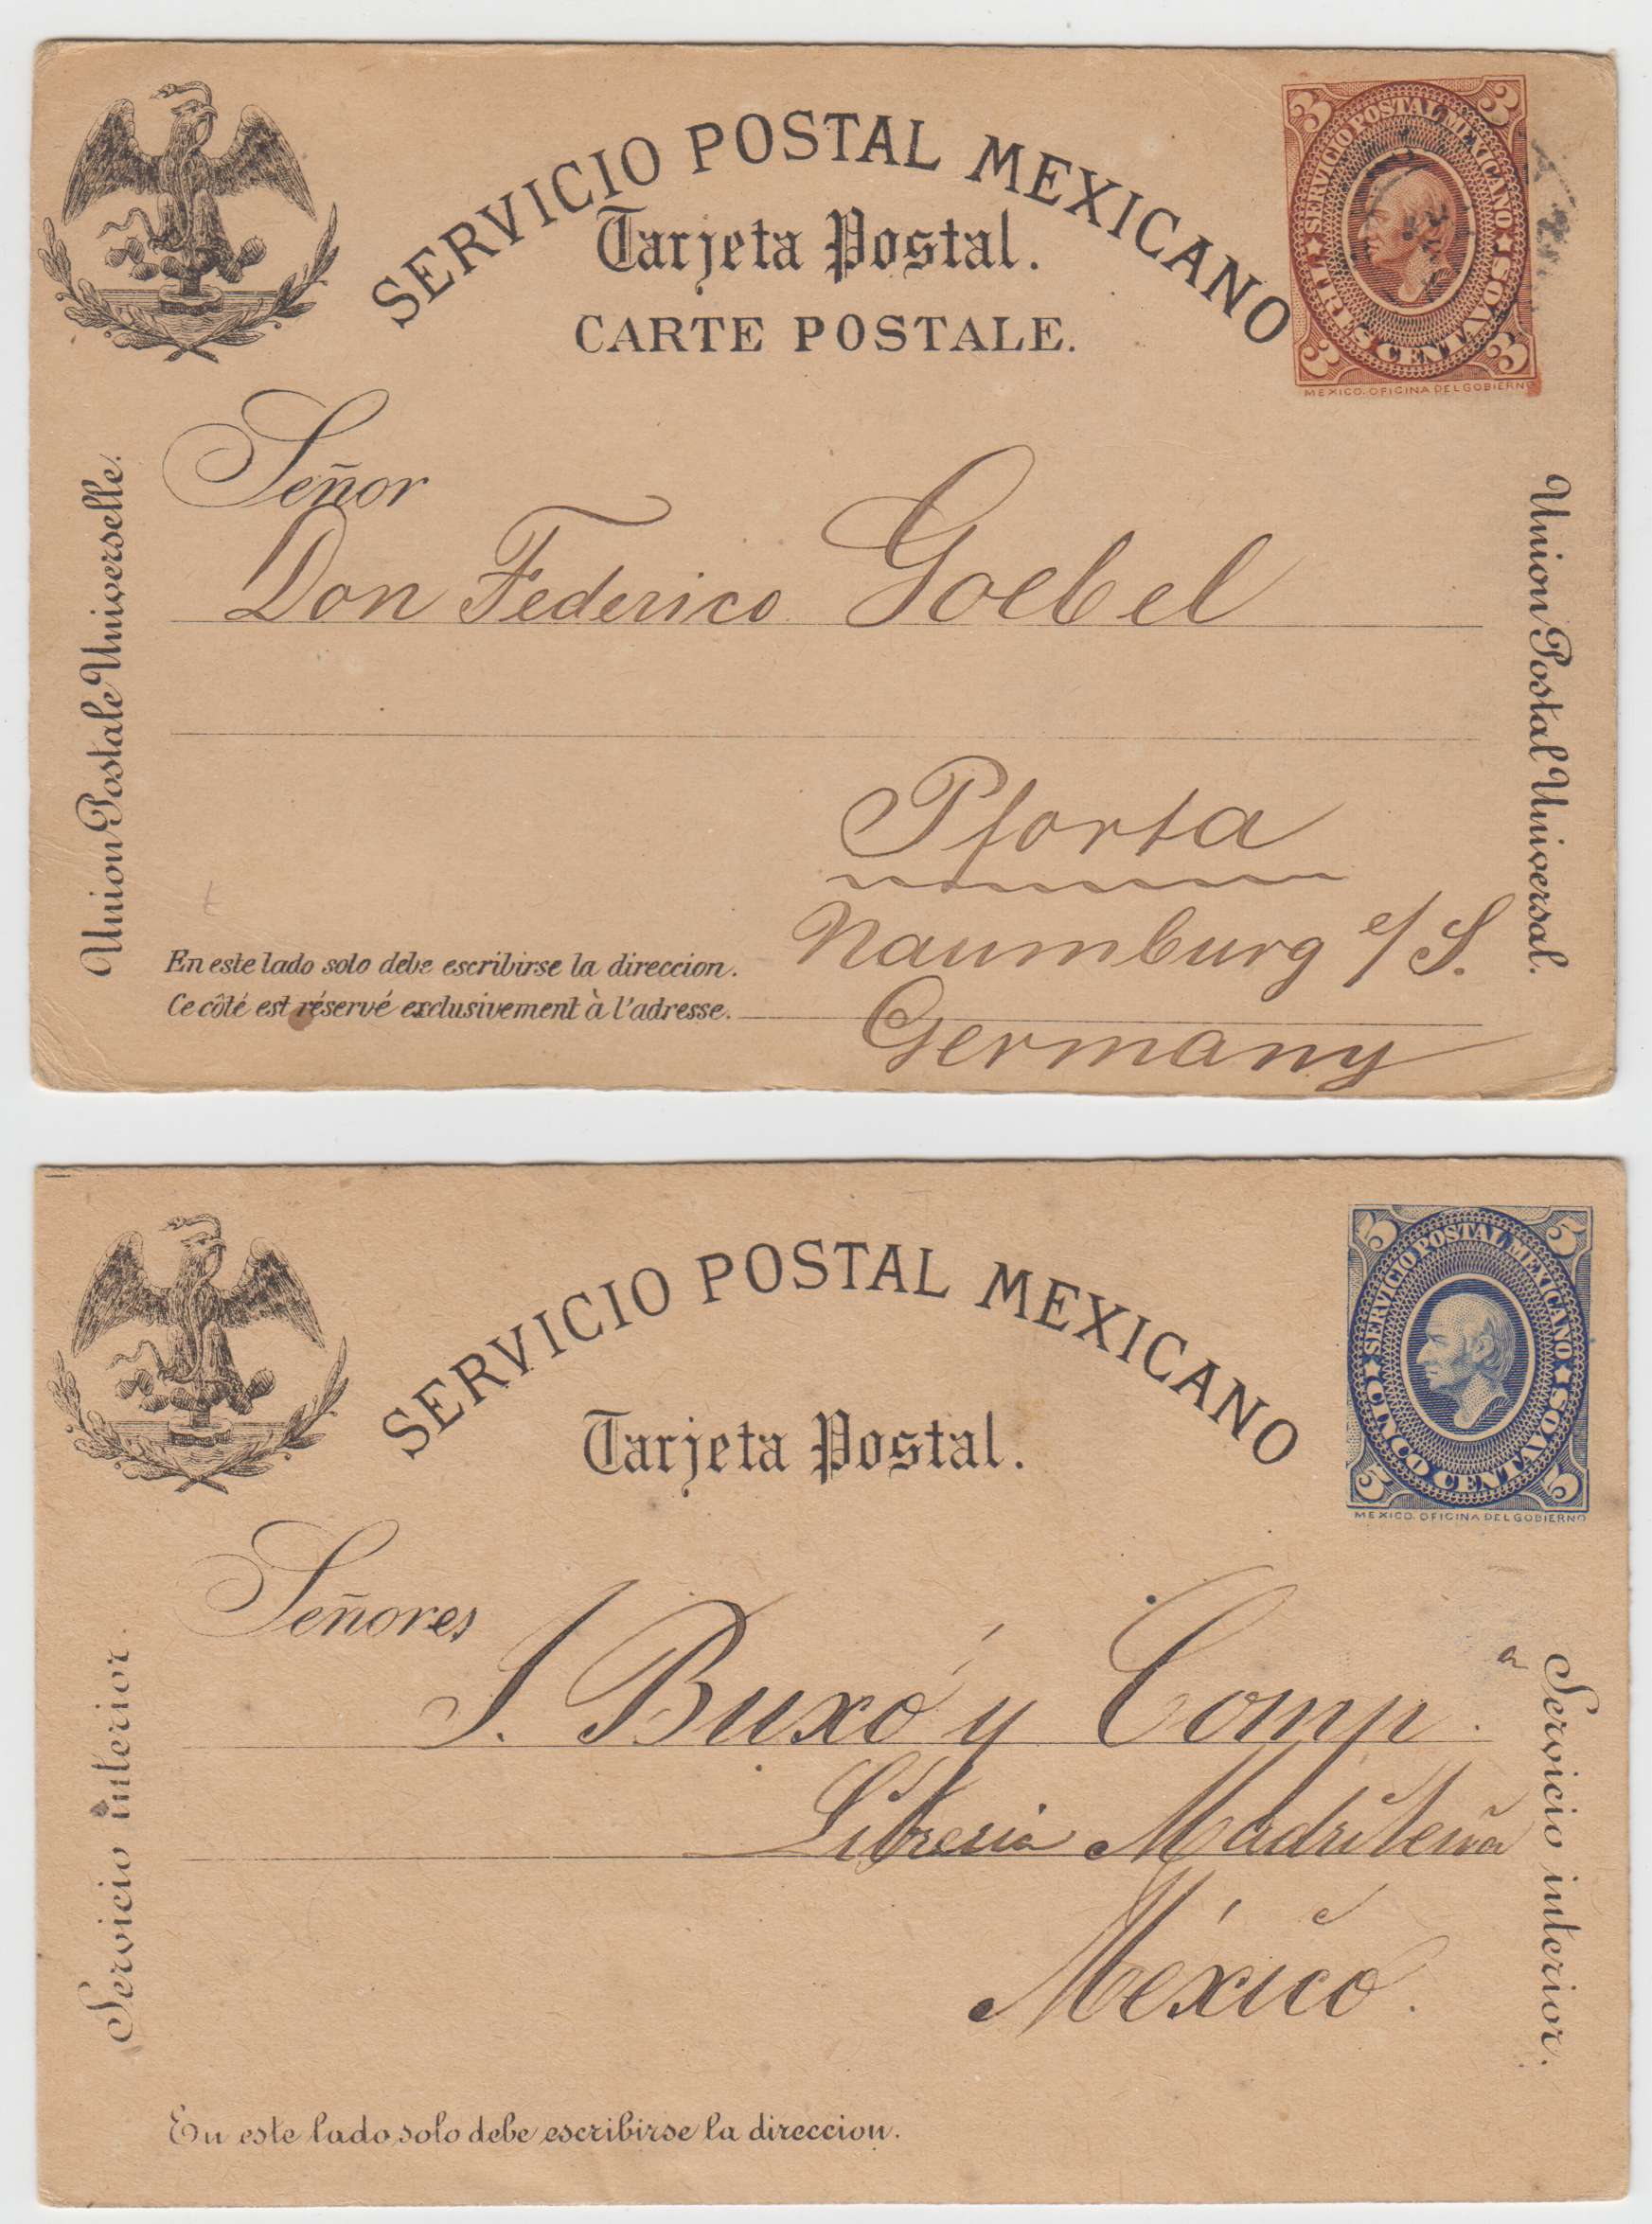 SERVICIO POSTAL MEXICANO
Tarjeta Postal.
CARTE POSTALE.
3 3
SERVICIO POSTAL MEXICANO
TRES CENTAVOS
3 3
MEXICO. OFICINA DEL GOBIERNO
Union Postale Universelle.
Union Postal Universal.
Señor
Don Federico Goebel
Pforta
Naumburg a/S.
Germany
En este lado solo debe escribirse la direccion.
Ce côté est réservé exclusivement à l'adresse.
SERVICIO POSTAL MEXICANO
Tarjeta Postal.
5 5
SERVICIO POSTAL MEXICANO
CINCO CENTAVOS
5 5
MEXICO. OFICINA DEL GOBIERNO
Servicio interior.
Servicio interior.
Señores
J. Buxó y Comp.
a
Libreria Madrileña
México.
En este lado solo debe escribirse la direccion.